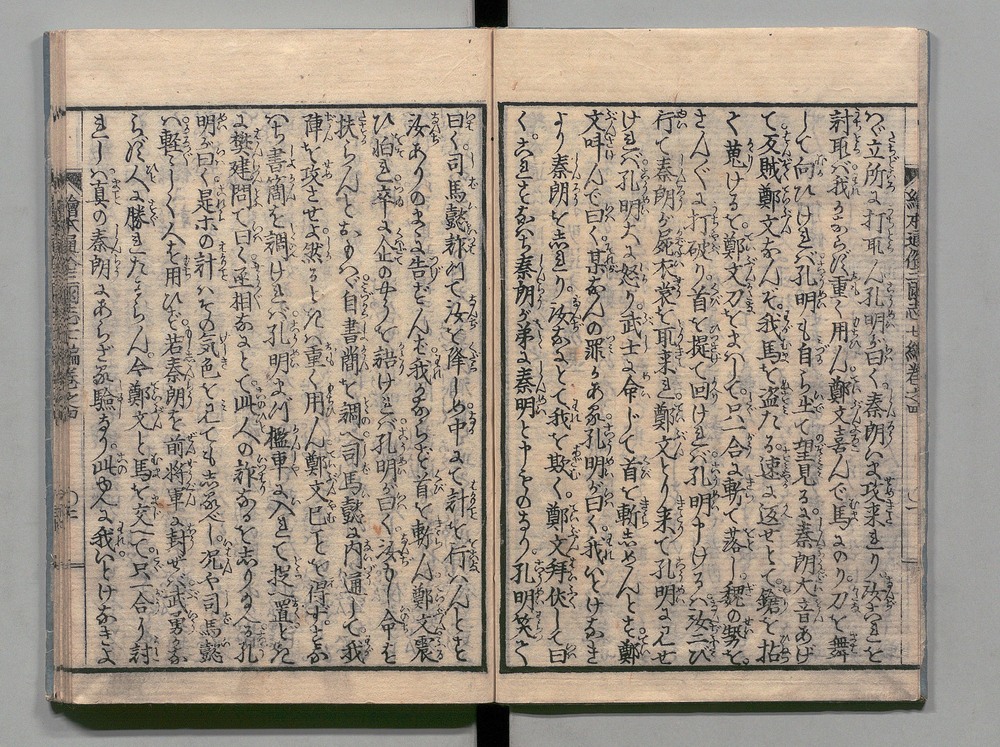 バ立所に打取ん孔明が曰く秦朗いま攻来れり汝これを
討取バ我かならず重く用ん鄭文喜んで馬にのり刀を舞
して向ひけれバ孔明も自ら出て望見るに秦朗大音あげ
て反賊鄭文なんぞ我馬を盗たる速に返せとて鎗を拈
て蒐けるを鄭文刀をまハして只一合に斬て落し魏の勢を
さんざんに打破り首を提て回けれバ孔明申けるハ汝二び
行て秦朗が屍衣裳を取来れ鄭文とり来て孔明に見せ
けれバ孔明大に怒り武士に命じて首を斬しめんとす鄭
文叫んで曰く某なんの罪かある孔明が曰く我いとけなき
より秦朗を志れり汝なんとて我を欺く鄭文拜伏して曰
く これハすなハち秦朗が弟に秦明と申ものなり孔明笑て
曰く司馬懿詐て汝を降しめ中にて計を行ハんとす
汝ありのまゝに告ずんバ我かならず首を斬ん鄭文震
ひ怕れ卒に企のやうを語けれバ孔明が曰く汝もし命を
扶らんとおもハゞ自書簡を調へ司馬懿に内通して我
陣を攻させよ然るときハ重く用ん鄭文已ことを得ずすな
ハち書簡を調けれバ孔明まづ檻車に入れて捉置ときに
樊建問て曰く丞相なにとて此人の詐なるを志り玉へる孔
明が曰く是ホの計ハその気色を見ても志るべし况や司馬懿
ハ軽〻しく人を用ひず若秦朗を前将軍に封ぜバ武勇かな
らず人に勝れたるならん今鄭文と馬を交へて只一合に討
れしハ真の秦朗にあらざる驗なり此ゆへに我いとけなきよ
繪本通俗三國志七編巻之四